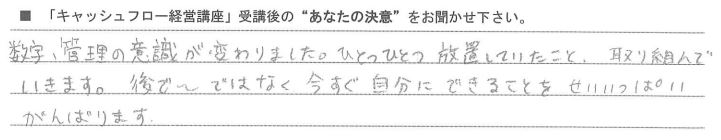 ■ 「キャッシュフロー経営講座」受講後の“あなたの決意”をお聞かせ下さい。
数字、管理の意識が変わりました。ひとつひとつ放置していたこと、取り組んで
いきます。後で〜ではなく今すぐ自分にできることをせいいっぱい
がんばります.